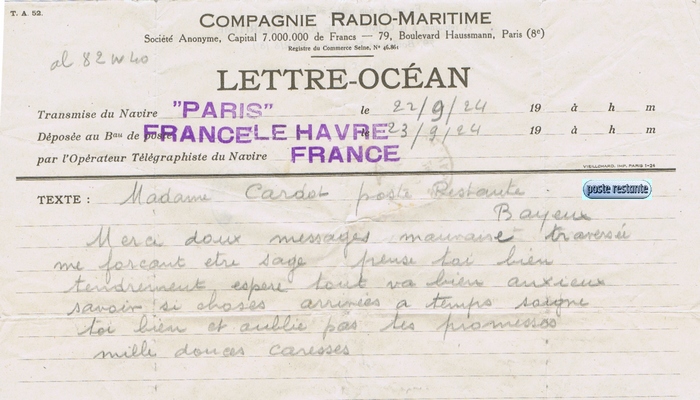 T. A. 52.
COMPAGNIE RADIO-MARITIME
Société Anonyme, Capital 7.000.000 de Francs — 79, Boulevard Haussmann, Paris (8e)
Registre du Commerce Seine, N°
al 82W40
LETTRE-OCÉAN
Transmise du Navire "PARIS" le 22/9/24 19 à h m
Déposée au Bau de poste FRANCE LE HAVRE le 23/9/24 19 à h m
par l'Opérateur Télégraphiste du Navire FRANCE
VIEILLEMARD, IMP. PARIS 7-24
TEXTE : Madame Cardot poste Restante
poste restante
Bayeux
Merci doux messages mauvaise traversée
me forcant etre sage pense toi bien
tendrement espere tout va bien anxieux
savoir si choses arrivées a temps soigne
toi bien et oublie pas tes promesses
mille douces caresses